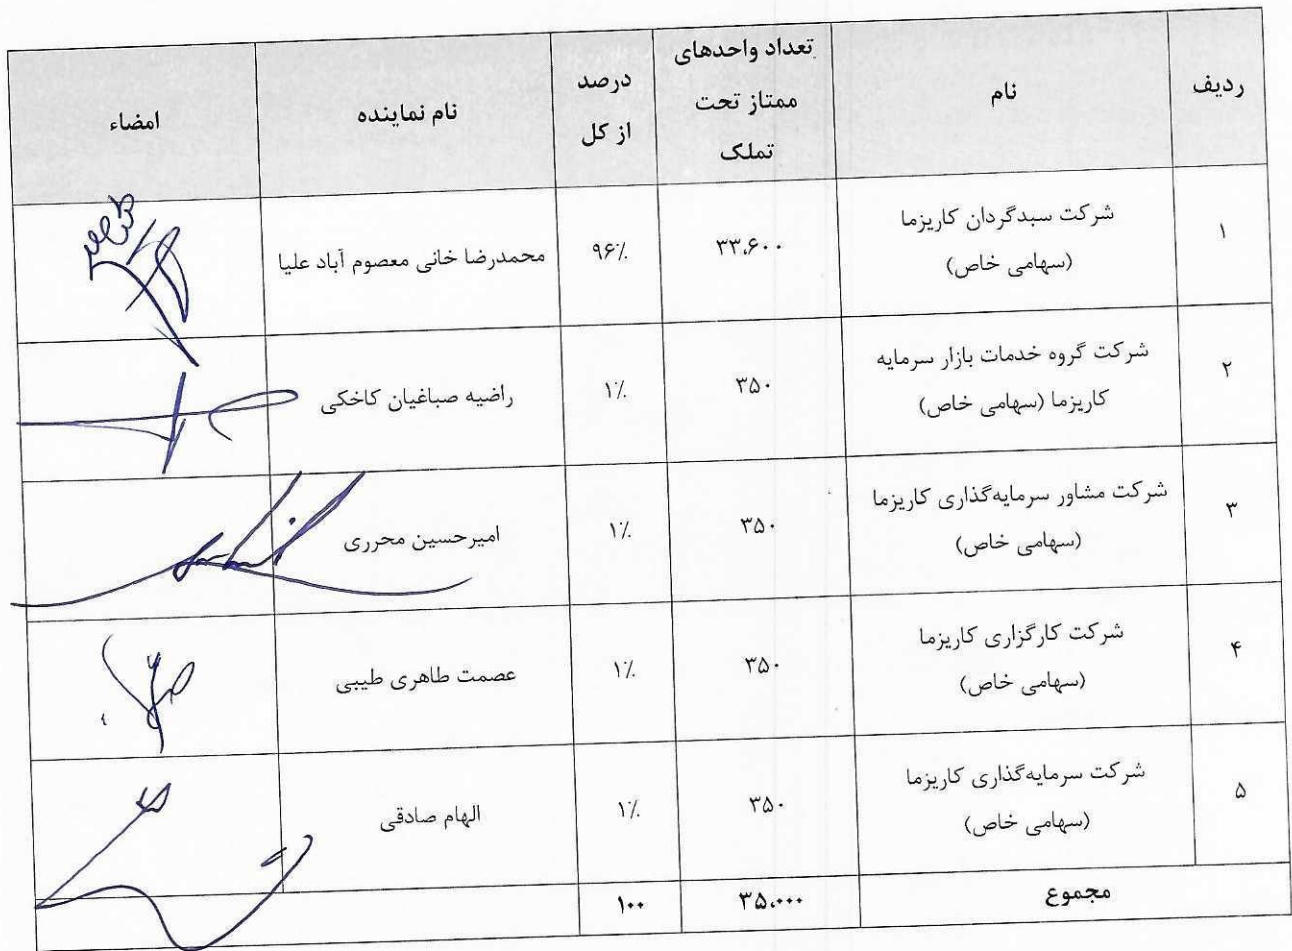 ردیف
نام
تعداد واحدهای
ممتاز تحت
تملک
درصد
از کل
نام نماینده
امضاء
۱
شرکت سبدگردان کاریزما
(سهامی خاص)
۳۳،۶۰۰
۹۶٪
محمدرضا خانی معصوم آباد علیا
۲
شرکت گروه خدمات بازار سرمایه
کاریزما (سهامی خاص)
۳۵۰
۱٪
راضیه صباغیان کاخکی
۳
شرکت مشاور سرمایه‌گذاری کاریزما
(سهامی خاص)
۳۵۰
۱٪
امیرحسین محرری
۴
شرکت کارگزاری کاریزما
(سهامی خاص)
۳۵۰
۱٪
عصمت طاهری طیبی
۵
شرکت سرمایه‌گذاری کاریزما
(سهامی خاص)
۳۵۰
۱٪
الهام صادقی
مجموع
۳۵،۰۰۰
۱۰۰